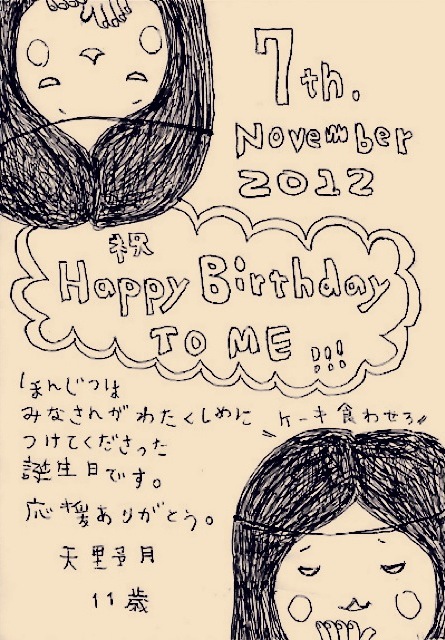 7th.
November
2012
祝
Happy Birthday
TO ME !!!
ほんじつは
みなさんがわたくしめに
つけてくださった
誕生日です。
応援ありがとう。
天里予月
11歳
ケーキ食わせろ"